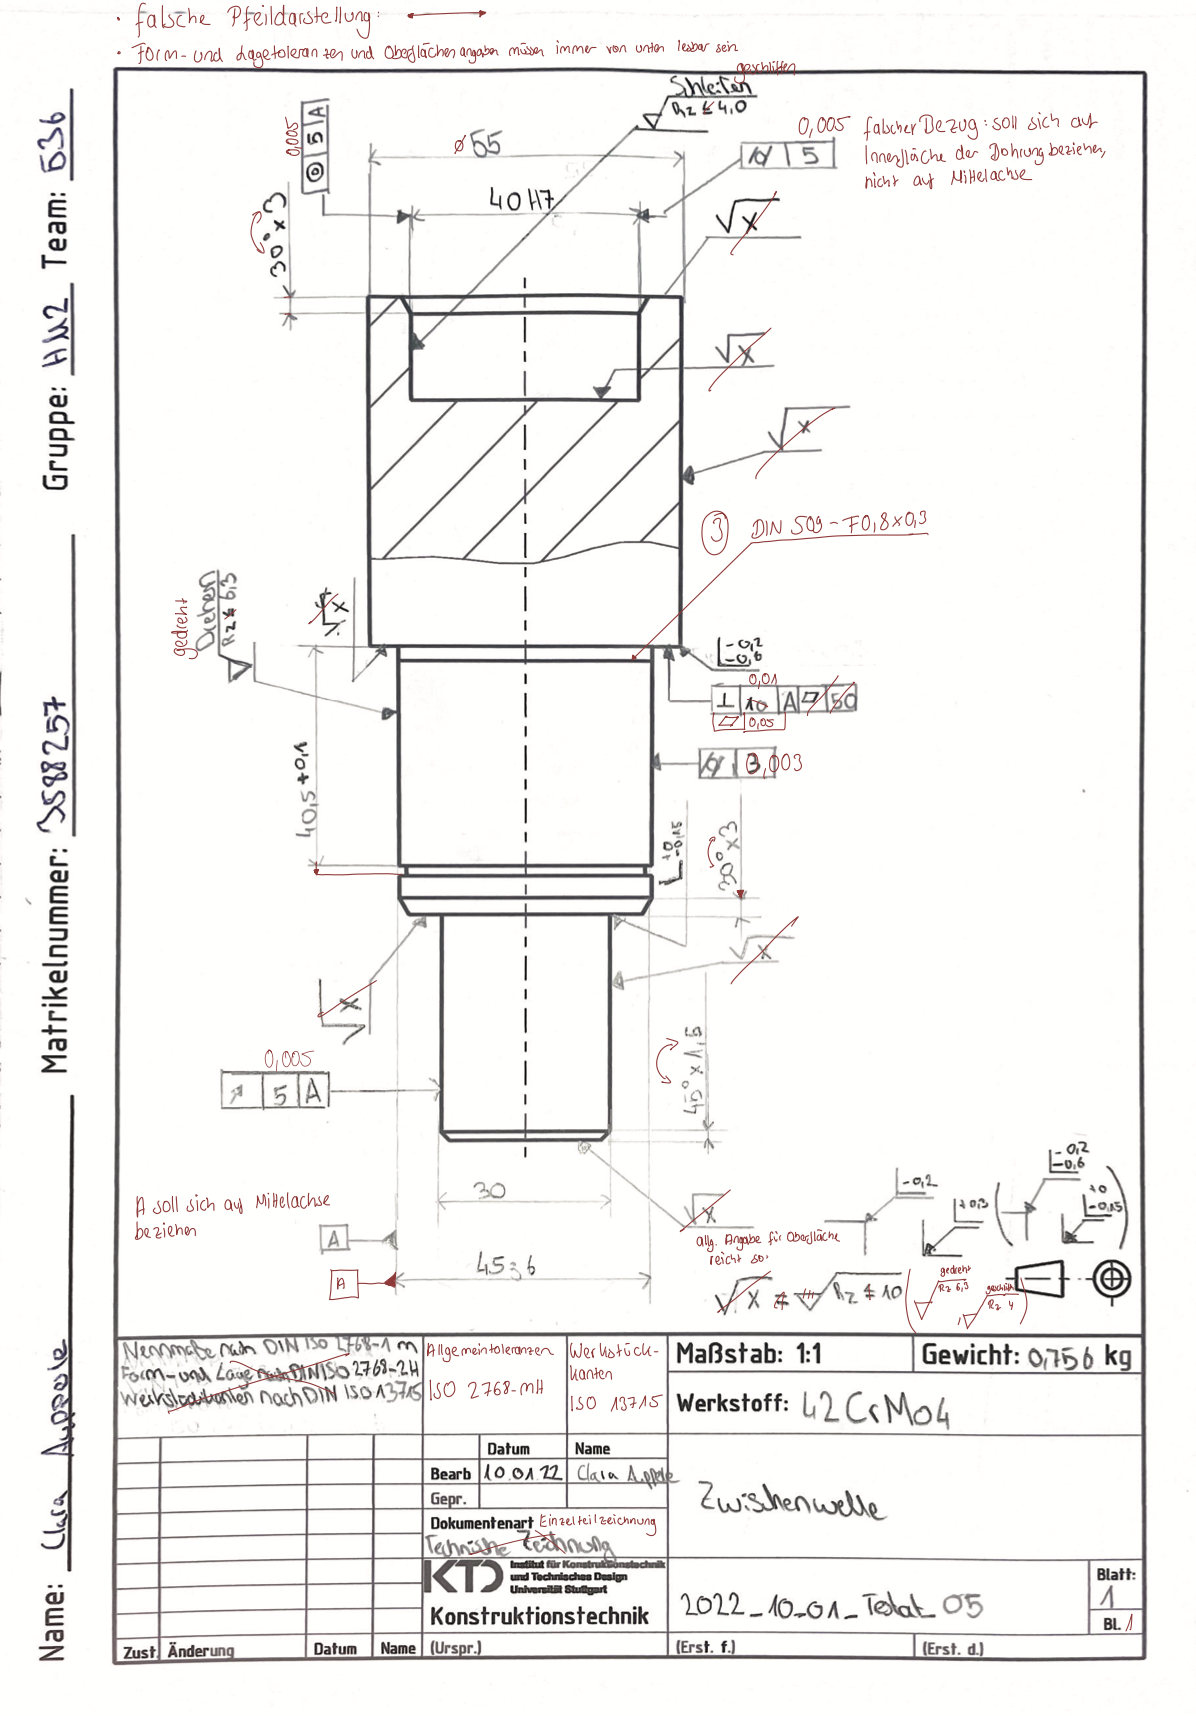 · falsche Pfeildarstellung:
· Form- und Lagetoleranzen und Oberflächenangaben müssen immer von unten lesbar sein
geschliffen
Schleifen
Rz ≤ 4,0
0,005
◎ 5 A
⌀ 55
40 H7
30° x 3
0,005
⌭ 5
falscher Bezug: soll sich auf
Innenfläche der Bohrung beziehen,
nicht auf Mittelachse
√x
√x
√x
3
DIN 509 - F0,8x0,3
gedreht
Drehen
Rz ≤ 6,3
√x
-0,2
-0,6
0,01
⊥ 10 A ▱ 50
▱ 0,05
⌭ 3,003
40,5 +0,1
+0
-0,15
30° x 3
√x
√x
0,005
↗ 5 A
45° x 1,5
30
A soll sich auf Mittelachse
beziehen
A
A
45
√x
allg. Angabe für Oberfläche
reicht so.
-0,2
+0,3
-0,2
-0,6
+0
-0,15
√x = √ Rz ≤ 10
gedreht
Rz 6,3
Rz 4
Nennmaße nach DIN ISO 2768-1 m
Form- und Lage nach DIN ISO 2768-2H
Werkstückkanten nach DIN ISO 13715
Allgemeintoleranzen
ISO 2768-mH
Werkstück-
kanten
ISO 13715
Maßstab: 1:1
Gewicht: 0,756 kg
Werkstoff: 42CrMo4
Datum Name
Bearb 10.01.22 Clara Appele
Gepr.
Zwischenwelle
Dokumentenart Einzelteilzeichnung
Technische Zeichnung
KTD
Institut für Konstruktionstechnik
und Technisches Design
Universität Stuttgart
Konstruktionstechnik
2022_10_01_Testat_05
Blatt:
1
Bl. 1
Zust. Änderung Datum Name (Urspr.) (Erst. f.) (Erst. d.)
Name: Clara Appele Matrikelnummer: 3588257 Gruppe: HM2 Team: B36